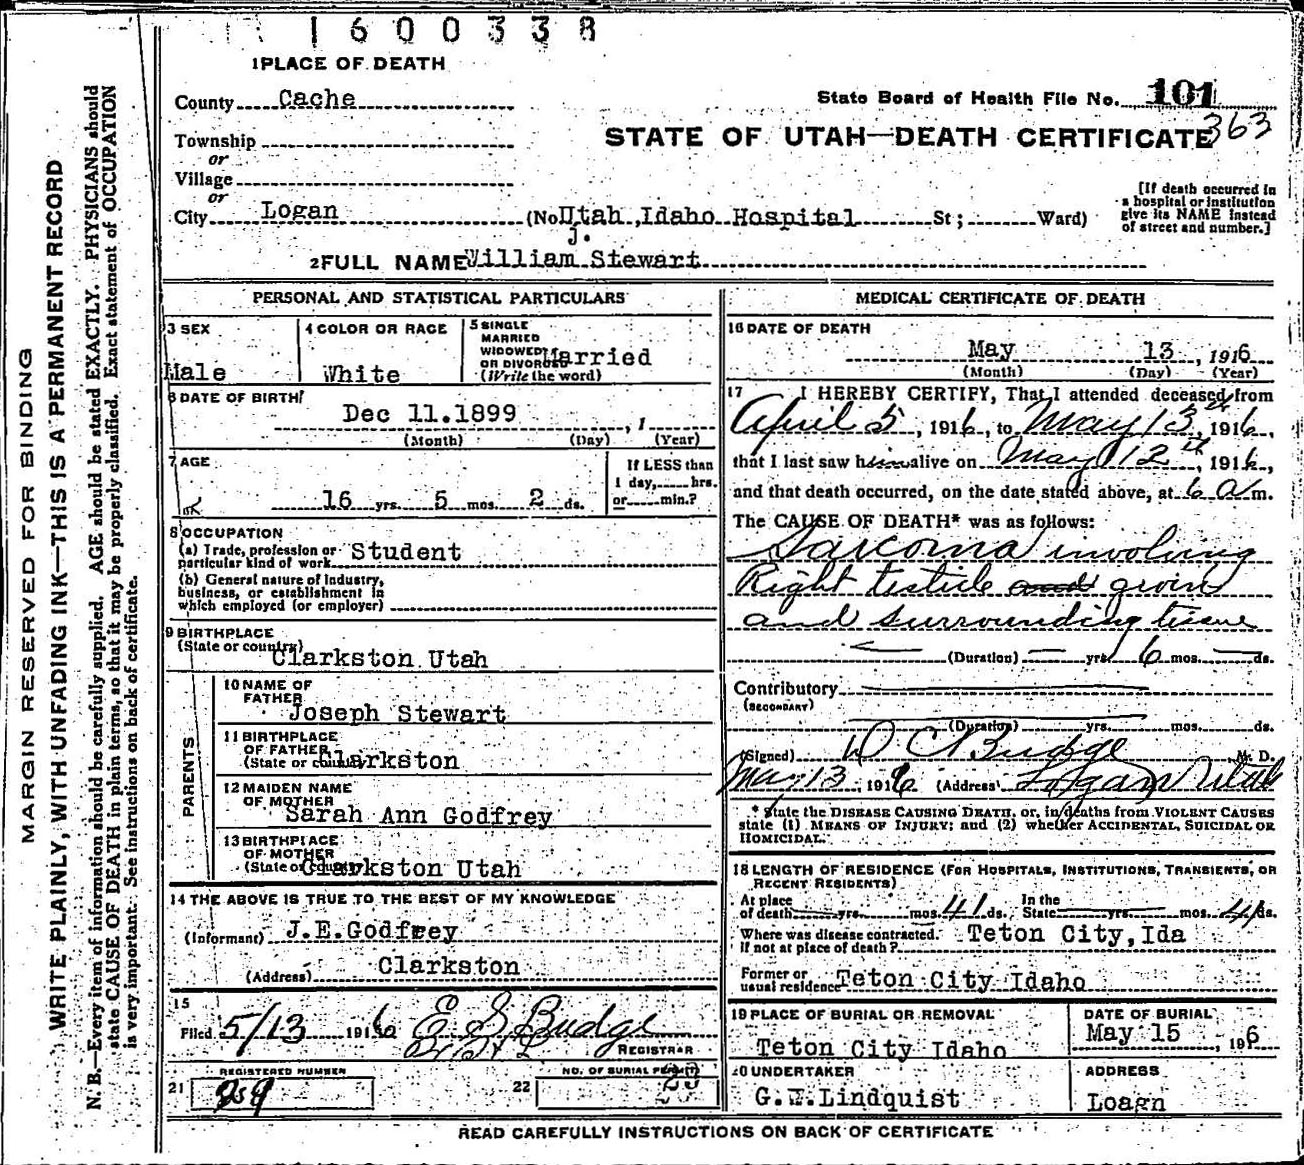 1600338
1 PLACE OF DEATH
County Cache
State Board of Health File No. 101
363
STATE OF UTAH—DEATH CERTIFICATE
Township
or
Village
or
City Logan (No Utah, Idaho Hospital St; Ward)
[If death occurred in
a hospital or institution
give its NAME instead
of street and number.]
J.
2 FULL NAME William Stewart
PERSONAL AND STATISTICAL PARTICULARS
3 SEX
Male
4 COLOR OR RACE
White
5 SINGLE
MARRIED
WIDOWED
OR DIVORCED
(Write the word)
Married
6 DATE OF BIRTH
Dec 11.1899 , 1
(Month) (Day) (Year)
7 AGE
16 yrs. 5 mos. 2 ds.
If LESS than
1 day, hrs.
or min.?
8 OCCUPATION
(a) Trade, profession or
particular kind of work Student
(b) General nature of Industry,
business, or establishment in
which employed (or employer)
9 BIRTHPLACE
(State or country)
Clarkston Utah
PARENTS
10 NAME OF
FATHER
Joseph Stewart
11 BIRTHPLACE
OF FATHER
(State or country)
Clarkston
12 MAIDEN NAME
OF MOTHER
Sarah Ann Godfrey
13 BIRTHPLACE
OF MOTHER
(State or country)
Clarkston Utah
14 THE ABOVE IS TRUE TO THE BEST OF MY KNOWLEDGE
(Informant) J.E.Godfrey
(Address) Clarkston
15
Filed 5/13 1916 E S Budge
REGISTRAR
21 REGISTERED NUMBER
22 NO. OF BURIAL PERMIT
MEDICAL CERTIFICATE OF DEATH
16 DATE OF DEATH
May 13, 1916
(Month) (Day) (Year)
17 I HEREBY CERTIFY, That I attended deceased from
April 5, 1916, to May 13th, 1916,
that I last saw him alive on May 12th, 1916,
and that death occurred, on the date stated above, at 6 a m.
The CAUSE OF DEATH* was as follows:
Sarcoma involving
Right testicle and groin
and surrounding tissue
(Duration) yrs. 6 mos. ds.
Contributory
(SECONDARY)
(Duration) yrs. mos. ds.
(Signed) D C Budge M. D.
May 13, 1916 (Address) Logan Utah
* State the DISEASE CAUSING DEATH, or, in deaths from VIOLENT CAUSES
state (1) MEANS OF INJURY; and (2) whether ACCIDENTAL, SUICIDAL OR
HOMICIDAL.
18 LENGTH OF RESIDENCE (FOR HOSPITALS, INSTITUTIONS, TRANSIENTS, OR
RECENT RESIDENTS)
At place
of death yrs. mos. 41 ds.
In the
State yrs. mos. 41 ds.
Where was disease contracted.
If not at place of death? Teton City, Ida
Former or
usual residence Teton City Idaho
19 PLACE OF BURIAL OR REMOVAL
Teton City Idaho
DATE OF BURIAL
May 15, 1916
20 UNDERTAKER
G.W.Lindquist
ADDRESS
Loagn
READ CAREFULLY INSTRUCTIONS ON BACK OF CERTIFICATE
MARGIN RESERVED FOR BINDING
WRITE PLAINLY, WITH UNFADING INK—THIS IS A PERMANENT RECORD
N. B.—Every item of information should be carefully supplied. AGE should be stated EXACTLY. PHYSICIANS should
state CAUSE OF DEATH in plain terms, so that it may be properly classified. Exact statement of OCCUPATION
is very important. See instructions on back of certificate.